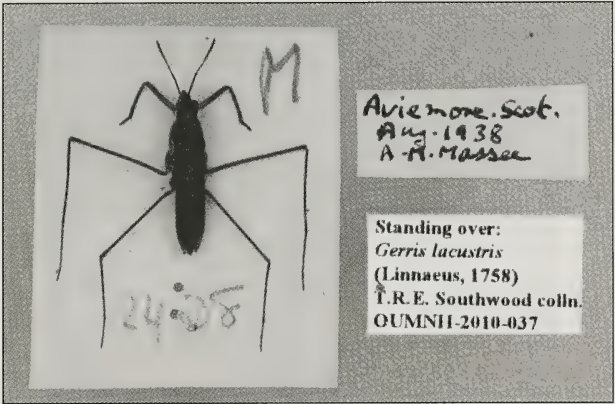 M
Aviemore. Scot.
Aug. 1938
A. M. Massee
Standing over:
Gerris lacustris
(Linnaeus, 1758)
T.R.E. Southwood colln.
OUMNH-2010-037